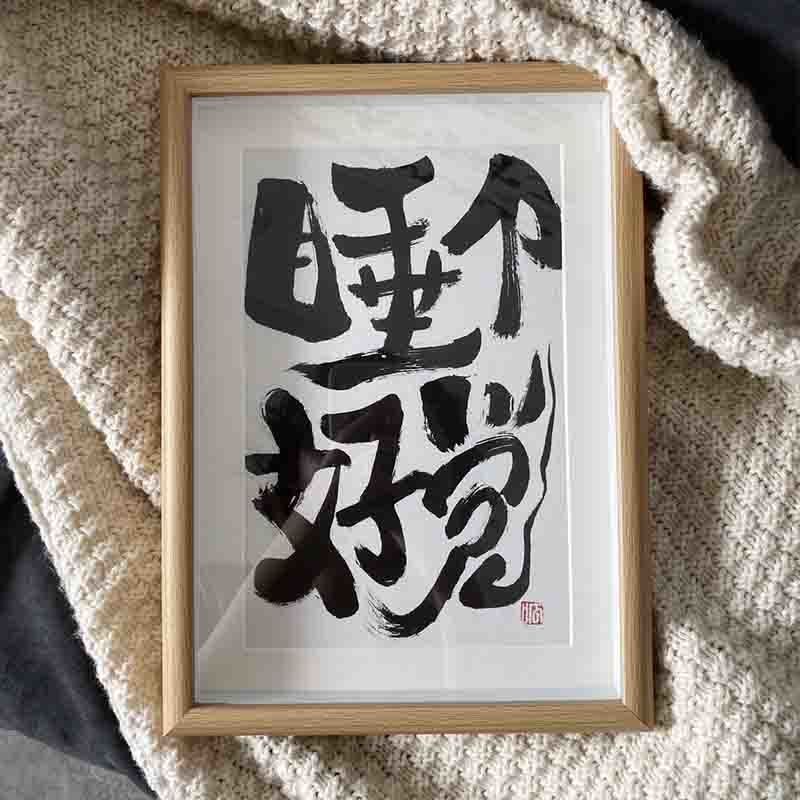 睡个
好觉